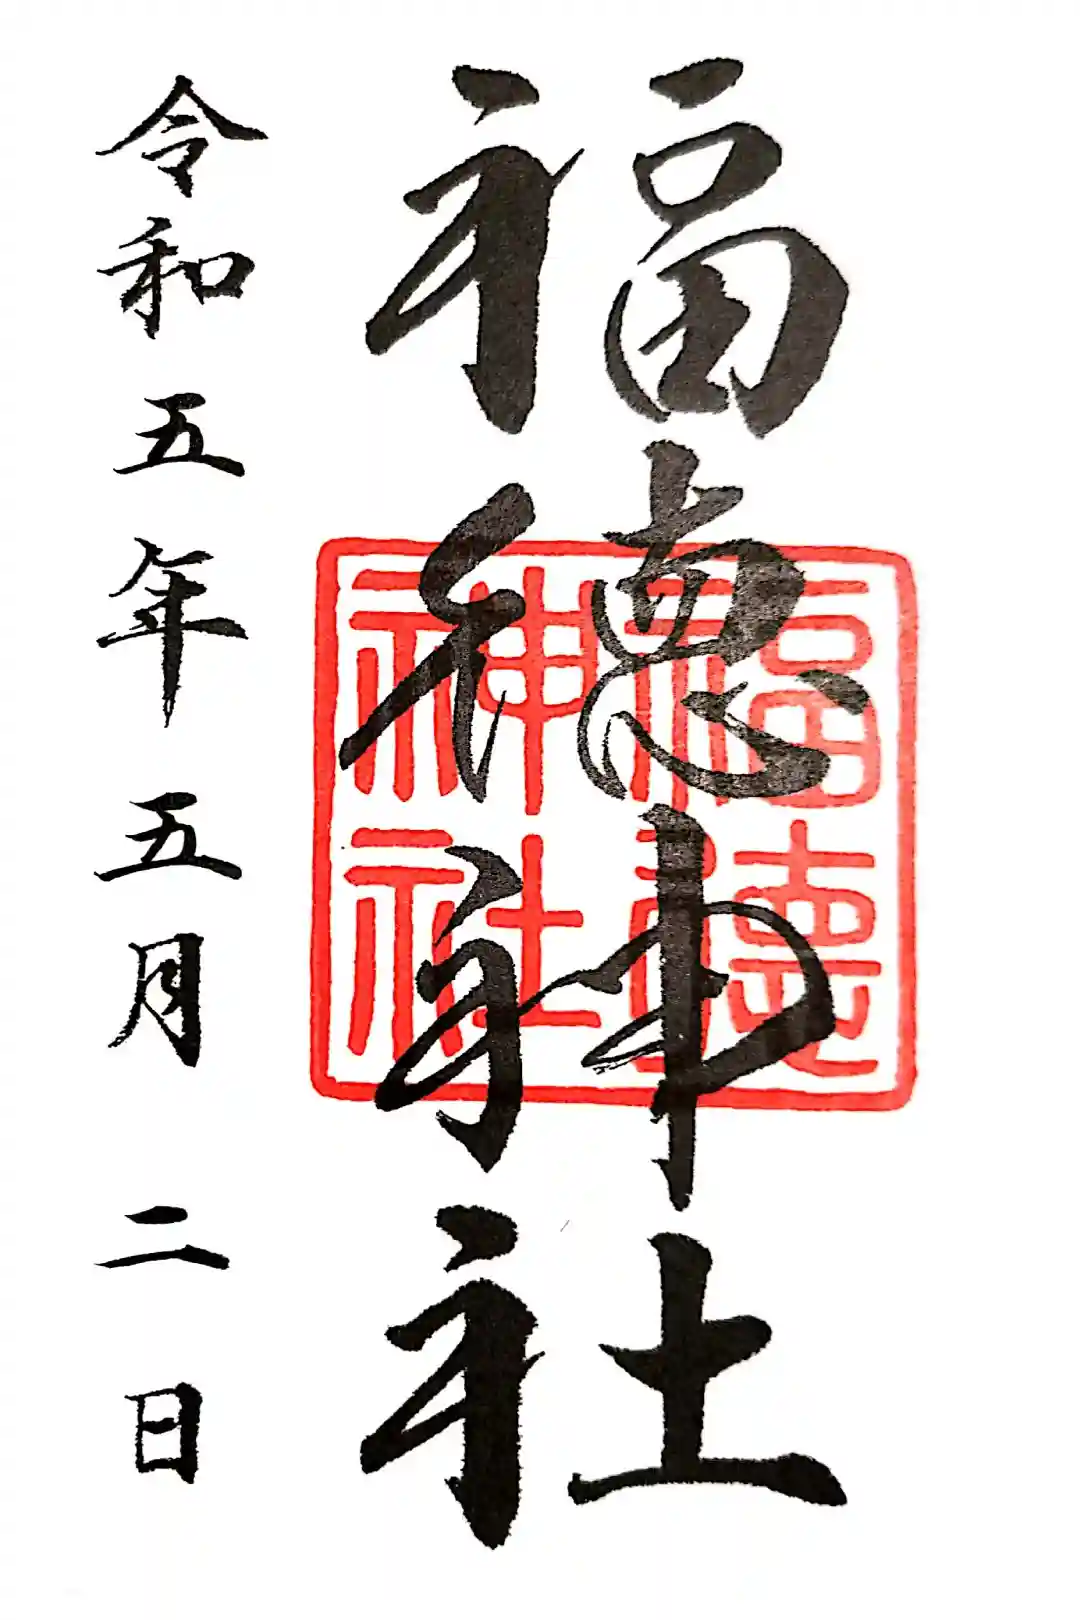 福徳神社
福徳神社
令和五年五月二日